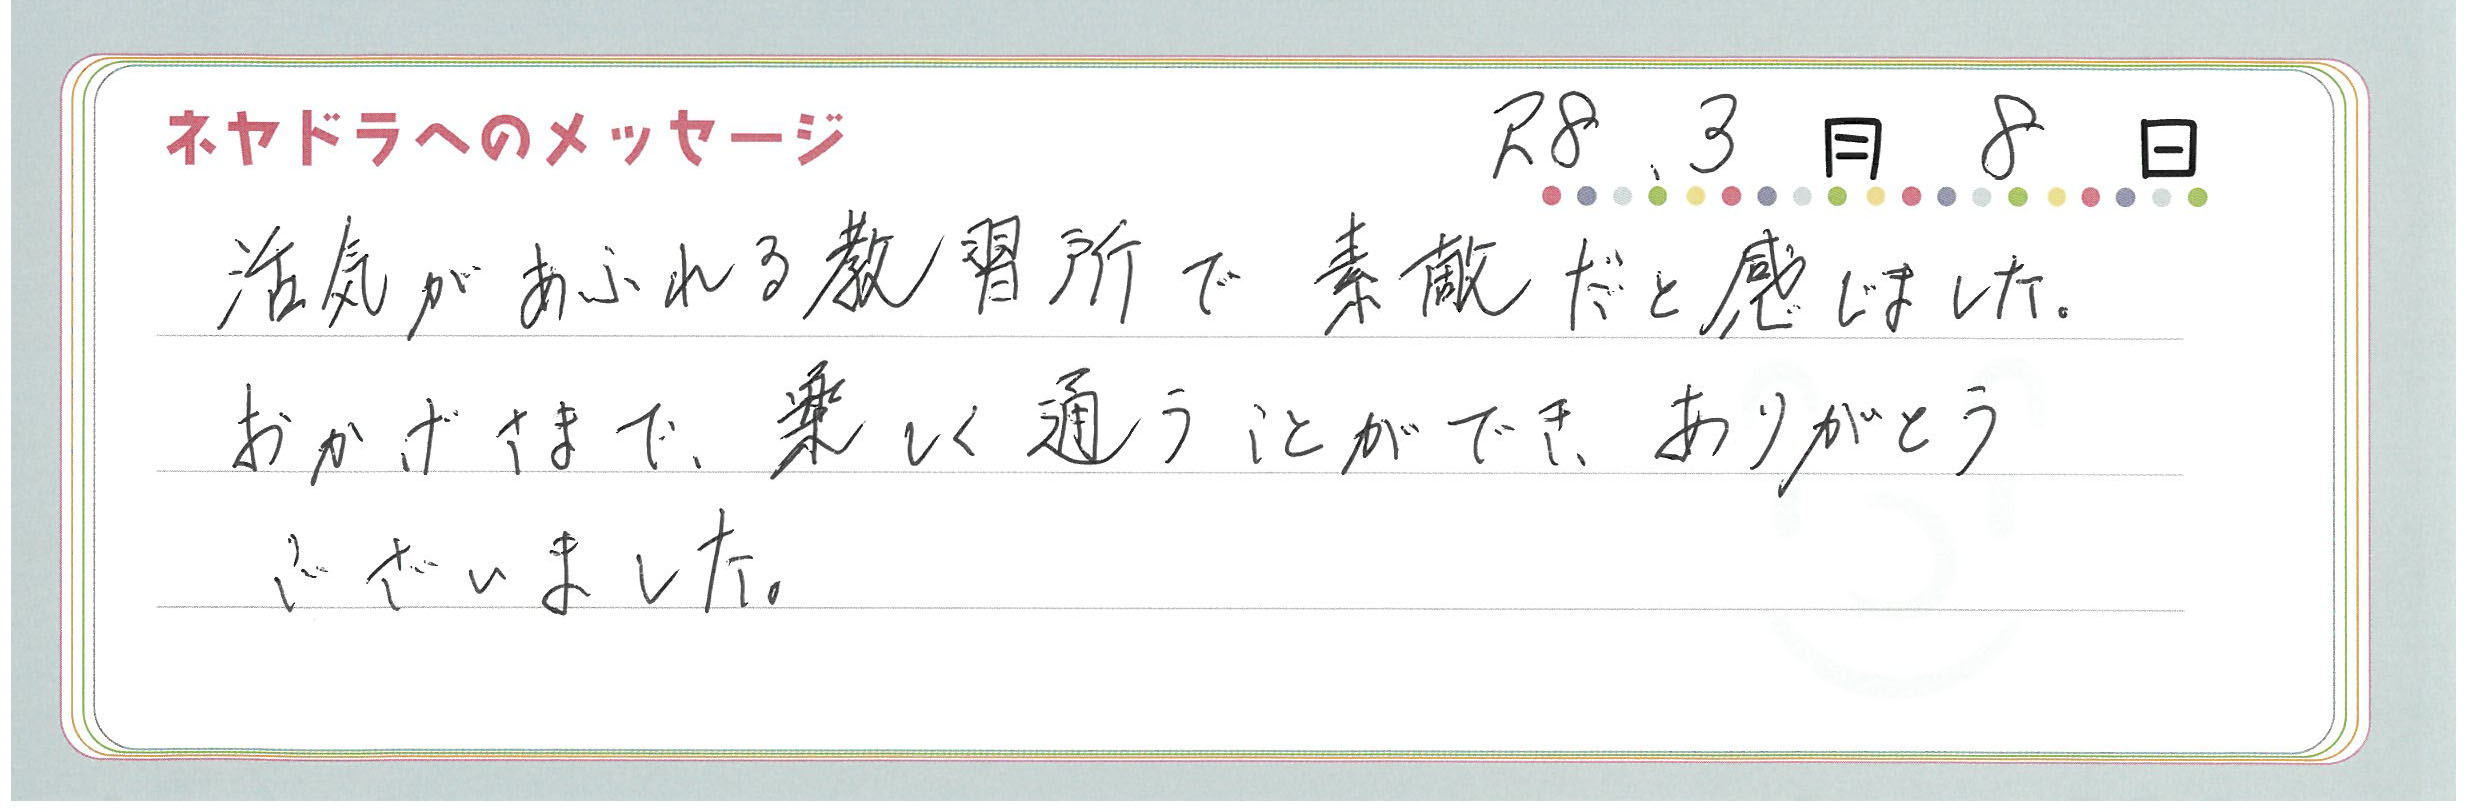 ネヤドラへのメッセージ
R8.3月8日
活気があふれる教習所で素敵だと感じました。
おかげさまで、楽しく通うことができ、ありがとう
ございました。